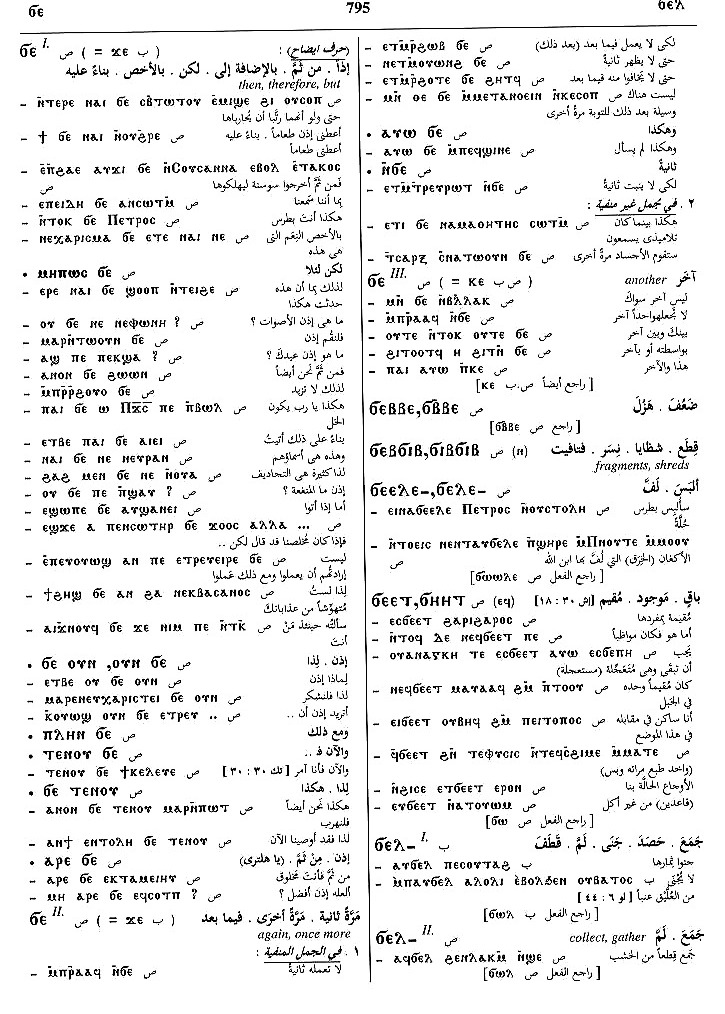 ϭⲉ
795
ϭⲉⲗ
ϭⲉ I. ص ( = ϫⲉ ب ) (حرف ايضاح) :
إذاً . من ثَمَّ . بالإضافة إلى . لكن . بالأخص . بناءً عليه
then, therefore, but
– ⲛ̄ⲧⲉⲣⲉ ⲛⲁⲓ ϭⲉ ⲥⲃ̄ⲧⲱⲧⲟⲩ ⲉ̄ⲙⲓϣⲉ ϩⲓ ⲟⲩⲥⲟⲡ ص
– ϯ ϭⲉ ⲛⲁⲓ ⲛ̄ⲟⲩϩⲣⲉ ص أعطني إذن طعاماً . بناءً عليه
أعطني طعاماً
– ⲉ̄ⲡϩⲁⲉ ⲁⲩϫⲓ ϭⲉ ⲛ̄Ⲥⲟⲩⲥⲁⲛⲛⲁ ⲉⲃⲟⲗ ⲉ̄ⲧⲁⲕⲟⲥ
ص فمن ثَمَّ أخرجوا سوسنة ليهلكوها
– ⲉⲡⲉⲓⲇⲏ ϭⲉ ⲁⲛⲥⲱⲧⲙ̄ ص بما أننا سمعنا
– ⲛ̄ⲧⲟⲕ ϭⲉ Ⲡⲉⲧⲣⲟⲥ ص هكذا أنتَ بطرس
– ⲛⲉⲭⲁⲣⲓⲥⲙⲁ ϭⲉ ⲉⲧⲉ ⲛⲁⲓ ⲛⲉ ص بالأخص النِعَم التى
هى هذه
• ⲙⲏⲡⲱⲥ ϭⲉ ص لكن لئلا
– ⲉⲣⲉ ⲛⲁⲓ ϭⲉ ϣⲟⲟⲡ ⲛ̄ⲧⲉⲓϩⲉ ص لذلك بما أن هذه
حدثت هكذا
– ⲟⲩ ϭⲉ ⲛⲉ ⲛⲉⲫⲱⲛⲏ ? ص ما هى إذن الأصوات ؟
– ⲙⲁⲣⲛ̄ⲧⲱⲟⲩⲛ ϭⲉ ص فلنقُم إذن
– ⲁϣ ⲡⲉ ⲡⲉⲕϣⲁ ? ص ما هو إذن عيدك ؟
– ⲁⲛⲟⲛ ϭⲉ ϩⲱⲱⲛ ص فمن ثَمَّ نحن أيضاً
– ⲙ̄ⲡⲣ̄ⲣ̄ϩⲟⲩⲟ ϭⲉ ص لذلك لا تزيد
– ⲡⲁⲓ ϭⲉ ⲱ Ⲡϫ̄ⲥ̄ ⲡⲉ ⲡ̄ⲃⲱⲗ ص هكذا يا رب يكون
الحل
– ⲉⲧⲃⲉ ⲡⲁⲓ ϭⲉ ⲁⲓⲉⲓ ص بناءً على ذلك أتيتُ
– ⲛⲁⲓ ϭⲉ ⲛⲉ ⲛⲉⲩⲣⲁⲛ ص وهذه هى أسماؤهم
– ϩⲁϩ ⲙⲉⲛ ϭⲉ ⲛⲉ ⲛ̄ⲟⲩⲁ ص لذا كثيرة هى التجاديف
– ⲟⲩ ϭⲉ ⲡⲉ ⲡ̄ϣⲁⲩ ? ص إذن ما المنفعة ؟
– ⲉϣⲱⲡⲉ ϭⲉ ⲁⲩϣⲁⲛⲉⲓ ص أما إذا أتوا
– ⲉϣϫⲉ ⲁ ⲡⲉⲛⲥⲱⲧⲏⲣ ϭⲉ ϫⲟⲟⲥ ⲁⲗⲗⲁ ... ص
فإذا كان مخلصنا قد قال لكن ..
– ⲉ̄ⲡⲉⲩⲟⲩⲱϣ ⲁⲛ ⲡⲉ ⲉⲧⲣⲉⲩⲉⲓⲣⲉ ϭⲉ ص ليست
إرادتُهم أن يعملوا ومع ذلك عملوا
– ϯϩⲏϣ ϭⲉ ⲁⲛ ϩⲁ ⲛⲉⲕⲃⲁⲥⲁⲛⲟⲥ ص لذا لستُ
– ⲁⲓϫⲛⲟⲩϥ ϭⲉ ϫⲉ ⲛⲓⲙ ⲡⲉ ⲛ̄ⲧⲕ̄ ص سألتُه حينئذ مَنْ
أنت
• ϭⲉ ⲟⲩⲛ ,ⲟⲩⲛ ϭⲉ ص إذن . لِذا
– ⲉⲧⲃⲉ ⲟⲩ ϭⲉ ⲟⲩⲛ ص لماذا إذن
– ⲙⲁⲣⲉⲛⲉⲩⲭⲁⲣⲓⲥⲧⲉⲓ ϭⲉ ⲟⲩⲛ ص لذا فلنشكر
– ⲕ̄ⲟⲩⲱϣ ⲟⲩⲛ ϭⲉ ⲉⲧⲣⲉⲩ .. ص أتريد إذن أن ..
• ⲡⲗⲏⲛ ϭⲉ ص ومع ذلك
• ⲧⲉⲛⲟⲩ ϭⲉ ص والآن فـ ..
– ⲧⲉⲛⲟⲩ ϭⲉ ϯⲕⲉⲗⲉⲩⲉ ص [تك ٣٠ : ٣٠] والآن فأنا آمر
• ϭⲉ ⲧⲉⲛⲟⲩ ص لِذا . هكذا
– ⲁⲛⲟⲛ ϭⲉ ⲧⲉⲛⲟⲩ ⲙⲁⲣⲛ̄ⲡⲱⲧ ص هكذا نحن أيضاً
فلنهرب
– ⲁⲛϯ ⲉⲛⲧⲟⲗⲏ ϭⲉ ⲧⲉⲛⲟⲩ ص لذا فقد أوصينا الآن
• ⲁⲣⲉ ϭⲉ ص إذن . مِنْ ثَمَّ . (يا هلترى)
– ⲁⲣⲉ ϭⲉ ⲉⲕⲧⲁⲙⲉⲓⲏⲩ ص من ثَمَّ فأنت مخلوق
– ⲙⲏ ⲁⲣⲉ ϭⲉ ⲉϥⲥⲟⲧⲡ ? ص ألعله إذن أفضل ؟
ϭⲉ II. ص ( = ϫⲉ ب ) مَرَّةً ثانية . مَرَّةً أخرى . فيما بعد
again, once more
١ . في الجمل المنفية :
– ⲙ̄ⲡⲣⲁⲁϥ ⲛ̄ϭⲉ ص لا تعمله ثانيةً
– ⲉⲧⲙ̄ⲣ̄ϩⲱⲃ ϭⲉ ص لكى لا يعمل فيما بعد (بعد ذلك)
– ⲛⲉⲧⲙ̄ⲟⲩⲱⲛϩ ϭⲉ ص حتى لا يظهر ثانيةً
– ⲉⲧⲙ̄ⲣ̄ϩⲟⲧⲉ ϭⲉ ϩⲏⲧϥ ص حتى لا يخافوا منه فيما بعد
– ⲙⲛ̄ ⲟⲉ ϭⲉ ⲙ̄ⲙⲉⲧⲁⲛⲟⲉⲓⲛ ⲛ̄ⲕⲉⲥⲟⲡ ص ليست هناك
وسيلة بعد ذلك للتوبة مرةً أخرى
• ⲁⲩⲱ ϭⲉ ص وهكذا
– ⲁⲩⲱ ϭⲉ ⲙ̄ⲡⲉϥϣⲓⲛⲉ ص وهكذا لم يسأل
• ⲛ̄ϭⲉ ص ثانيةً
– ⲉⲧⲙ̄ⲧⲣⲉⲩⲣⲱⲧ ⲛ̄ϭⲉ ص لكى لا ينبت ثانيةً
٢ . في جمل غير منفية :
– ⲉⲧⲓ ϭⲉ ⲛⲁⲙⲁⲑⲏⲧⲏⲥ ⲥⲱⲧⲙ̄ ص هكذا بينما كان
تلاميذى يسمعون
– ⲧ̄ⲥⲁⲣⲝ ⲥ̄ⲛⲁⲧⲱⲟⲩⲛ ϭⲉ ص ستقوم الأجساد مرةً أخرى
ϭⲉ III. ص.ب ( = ⲕⲉ ص ) another آخَر
– ⲙⲛ̄ ϭⲉ ⲛ̄ⲃⲗ̄ⲗⲁⲕ ص ليس آخر سواك
– ⲙ̄ⲡⲣⲁⲁϥ ⲛ̄ϭⲉ ص لا تجعلهاواحداً آخر
– ⲟⲩⲧⲉ ⲛ̄ⲧⲟⲕ ⲟⲩⲧⲉ ϭⲉ ص بينك وبين آخر
– ϩⲓⲧⲟⲟⲧϥ ⲏ ϩⲓⲧⲛ̄ ϭⲉ ص بواسطته أو بآخر
– ⲡⲁⲓ ⲁⲩⲱ ⲡ̄ⲕⲉ ص هذا والآخر
[ راجع أيضاً ص.ب ⲕⲉ]
ϭⲉⲃⲃⲉ,ϭⲃ̄ⲃⲉ ص ضَعُفَ . هَزُلَ
[ راجع ص ϭⲃ̄ⲃⲉ]
ϭⲉⲃϭⲓⲃ,ϭⲓⲃϭⲓⲃ (ⲛ) ص قِطَع . شظايا . نِسَر . فتافيت
fragments, shreds
ϭⲉⲉⲗⲉ–,ϭⲉⲗⲉ– ص ألبَسَ . لَفَّ
– ⲉⲓⲛⲁϭⲉⲉⲗⲉ Ⲡⲉⲧⲣⲟⲥ ⲛ̄ⲟⲩⲥⲧⲟⲗⲏ ص سأُلبِس بطرس
حُلَّةً
– ⲛ̄ⲧⲟⲉⲓⲥ ⲛⲉⲛⲧⲁⲩϭⲉⲗⲉ ⲡ̄ϣⲏⲣⲉ ⲙ̄Ⲡⲛⲟⲩⲧⲉ ⲙ̄ⲙⲟⲟⲩ
ص الأكفان (الخِرَق) التى لُفَّ بها ابن الله
[ راجع الفعل ص ϭⲱⲱⲗⲉ]
ϭⲉⲉⲧ,ϭⲏⲏⲧ ص (ⲉϥ) باقٍ . مَوجود . مُقيم [إش ٣٠ : ١٨]
– ⲉⲥϭⲉⲉⲧ ϩⲁⲣⲓϩⲁⲣⲟⲥ ص مُقيمة بمفردها
– ⲛ̄ⲧⲟϥ ⲇⲉ ⲛⲉϥϭⲉⲉⲧ ⲡⲉ ص أما هو فكان مواظباً
– ⲟⲩⲁⲛⲁⲅⲕⲏ ⲧⲉ ⲉⲥϭⲉⲉⲧ ⲁⲩⲱ ⲉⲥϭⲉⲡⲏ ص يجب
أن تبقى وهى مُتَعَجِّلة (مستعجلة)
– ⲛⲉϥϭⲉⲉⲧ ⲙⲁⲩⲁⲁϥ ϩⲙ̄ ⲡ̄ⲧⲟⲟⲩ ص كان مُقيماً وحده
في الجبل
– ⲉⲓϭⲉⲉⲧ ⲟⲩⲃⲏϥ ϩⲙ̄ ⲡⲉⲓⲧⲟⲡⲟⲥ ص أنا ساكن في مقابله
في هذا الموضع
– ϥ̄ϭⲉⲉⲧ ϩⲛ̄ ⲧⲉⲫⲩⲥⲓⲥ ⲛ̄ⲧⲉϥⲥ̄ϩⲓⲙⲉ ⲙ̄ⲙⲁⲧⲉ ص
(واحد طبع مراته وبس)
– ⲛ̄ϩⲓⲥⲉ ⲉⲧϭⲉⲉⲧ ⲉⲣⲟⲛ ص الأوجاع الحالَّة بنا
– ⲉⲩϭⲉⲉⲧ ⲛ̄ⲁⲧⲟⲩⲱⲙ ص (قاعدين) من غير أكل
[ راجع الفعل ص ϭⲱ]
ϭⲉⲗ– I. ب جَمَعَ . حَصَدَ . جَنَى . لَمَّ . قَطَفَ
– ⲁⲩϭⲉⲗ ⲡⲉⲥⲟⲩⲧⲁϩ ب جنوا ثمارها
– ⲙ̄ⲡⲁⲩϭⲉⲗ ⲁⲗⲟⲗⲓ ⲉ̄ⲃⲟⲗϧⲉⲛ ⲟⲩⲃⲁⲧⲟⲥ ب لا يُجْنَى
من العُلَّيق عنباً [لو ٦ : ٤٤]
[ راجع الفعل ب ϭⲱⲗ]
ϭⲉⲗ– II. ص collect, gather جَمَعَ . لَمَّ
– ⲁϥϭⲉⲗ ϩⲉⲛⲗⲁⲕⲙ̄ ⲛ̄ϣⲉ ص جمع قِطعاً من الخشب
[ راجع الفعل ص ϭⲱⲗ]